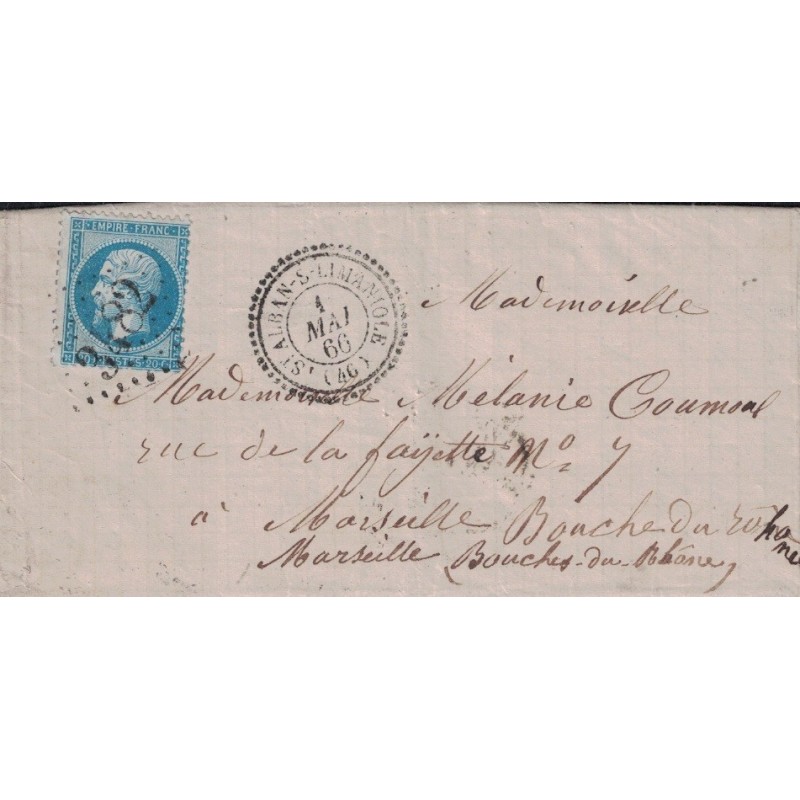 EMPIRE FRANC
ST ALBAN-S-LIMAGNOLE
1
MAI
66
(46)
Mademoiselle
Mademoiselle Mélanie
rue de la fayette No 7
à Marseille Bouche du
Marseille (Bouches-du-Rhône)